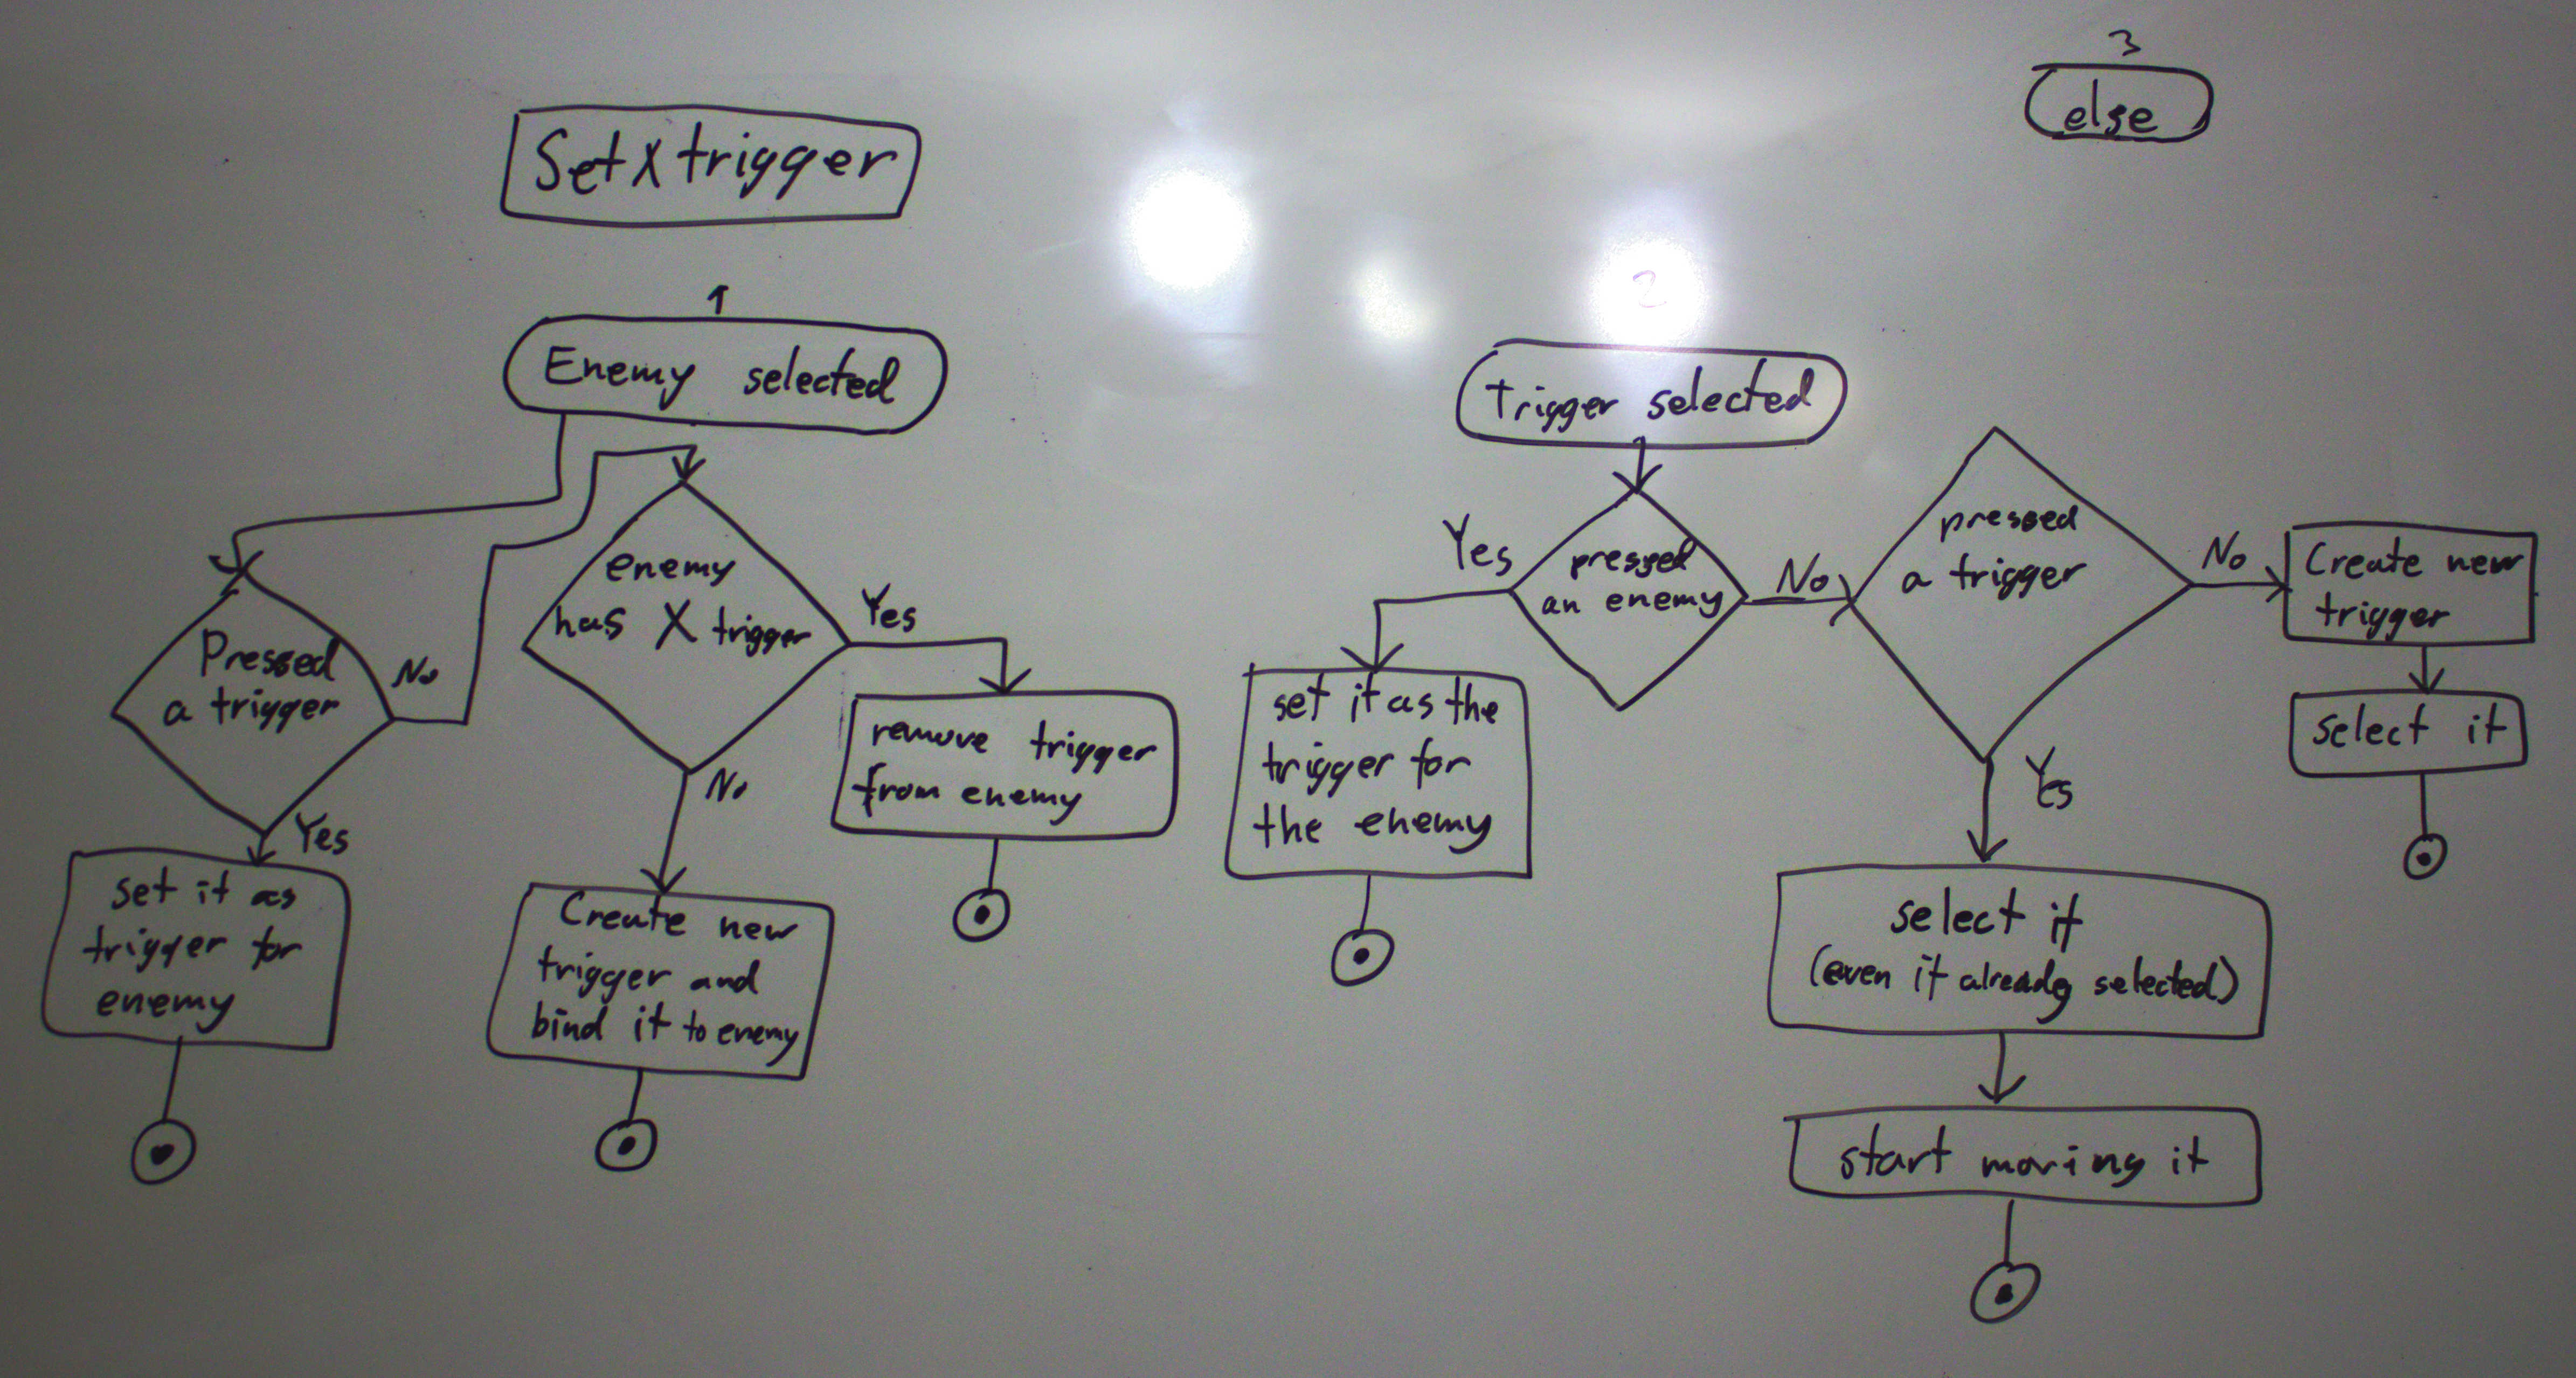 Set X trigger
1
Enemy selected
Pressed
a trigger
No
Yes
set it as
trigger for
enemy
enemy
has X trigger
Yes
remove trigger
from enemy
No
Create new
trigger and
bind it to enemy
2
Trigger selected
pressed
an enemy
Yes
set it as the
trigger for
the enemy
No
pressed
a trigger
No
Create new
trigger
select it
Yes
select it
(even if already selected)
start moving it
3
else